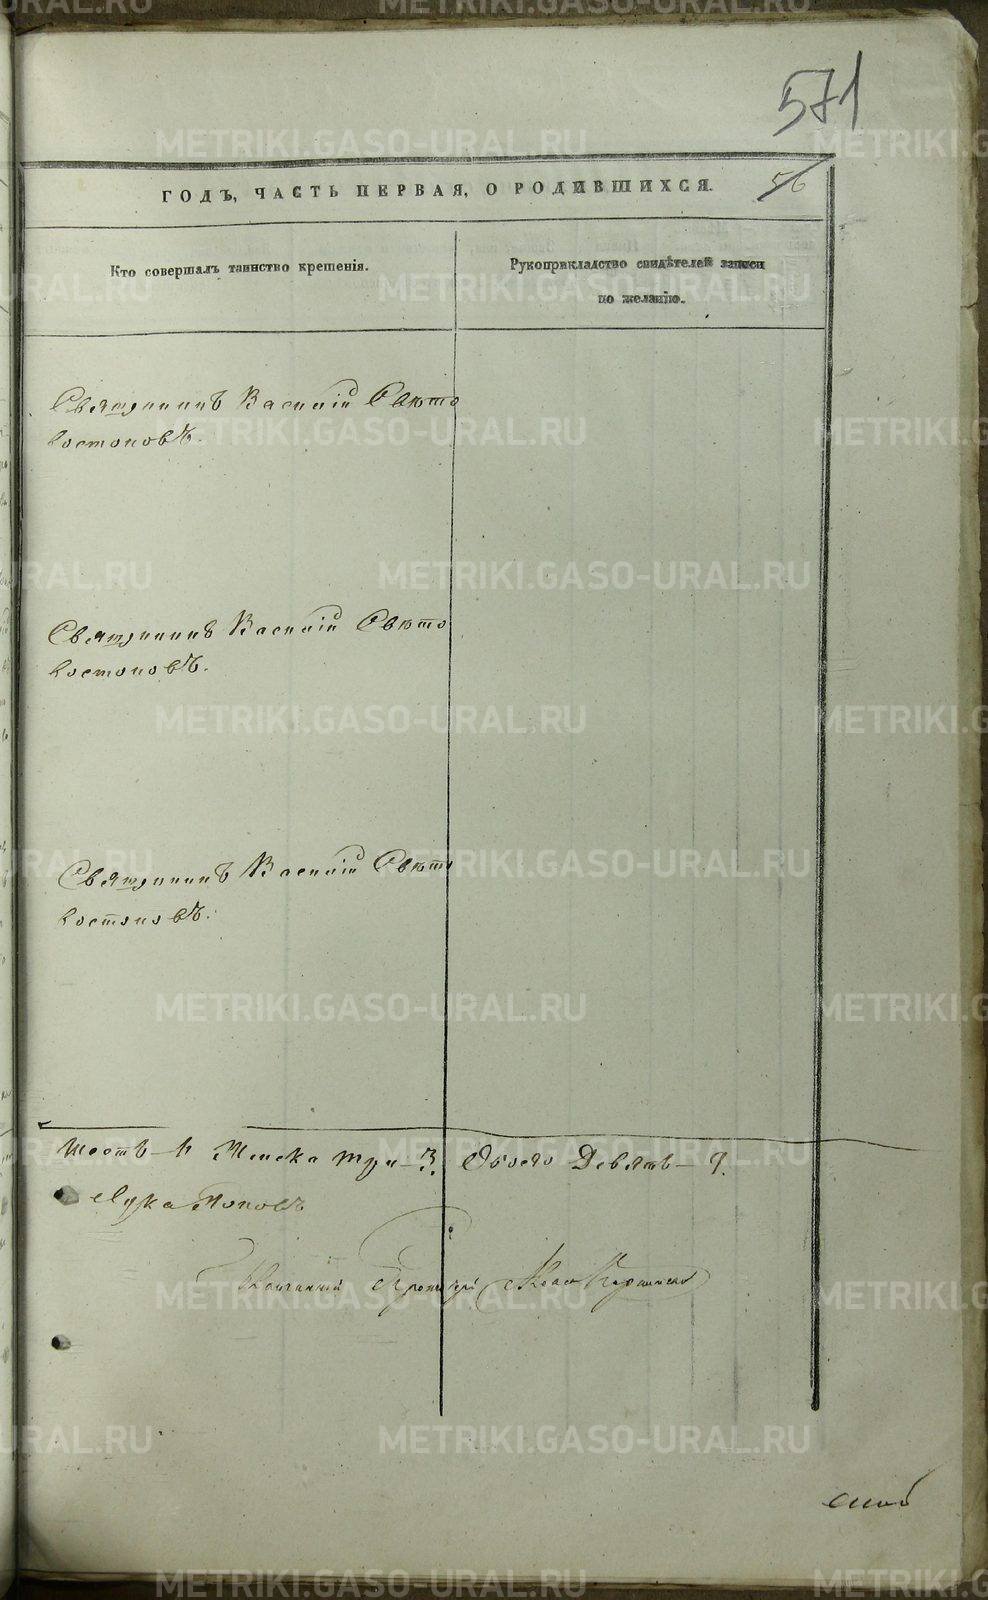 571
ГОДЪ, ЧАСТЬ ПЕРВАЯ, О РОДИВШИХСЯ.
56
Кто совершалъ таинство крещенія.
Рукоприкладство свидѣтелей записи
по желанію.
Священникъ Василій Свѣто
востоковъ.
Священникъ Василій Свѣто
востоковъ.
Священникъ Василій Свѣто
востоковъ.
шесть — 6 Женска три — 3. Обоего Девять — 9.
Лука Поповъ
METRIKI.GASO-URAL.RU